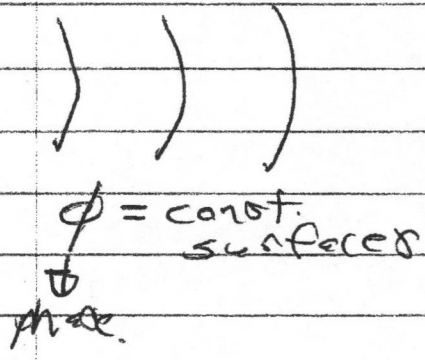 ϕ = const.
surfaces
phase.